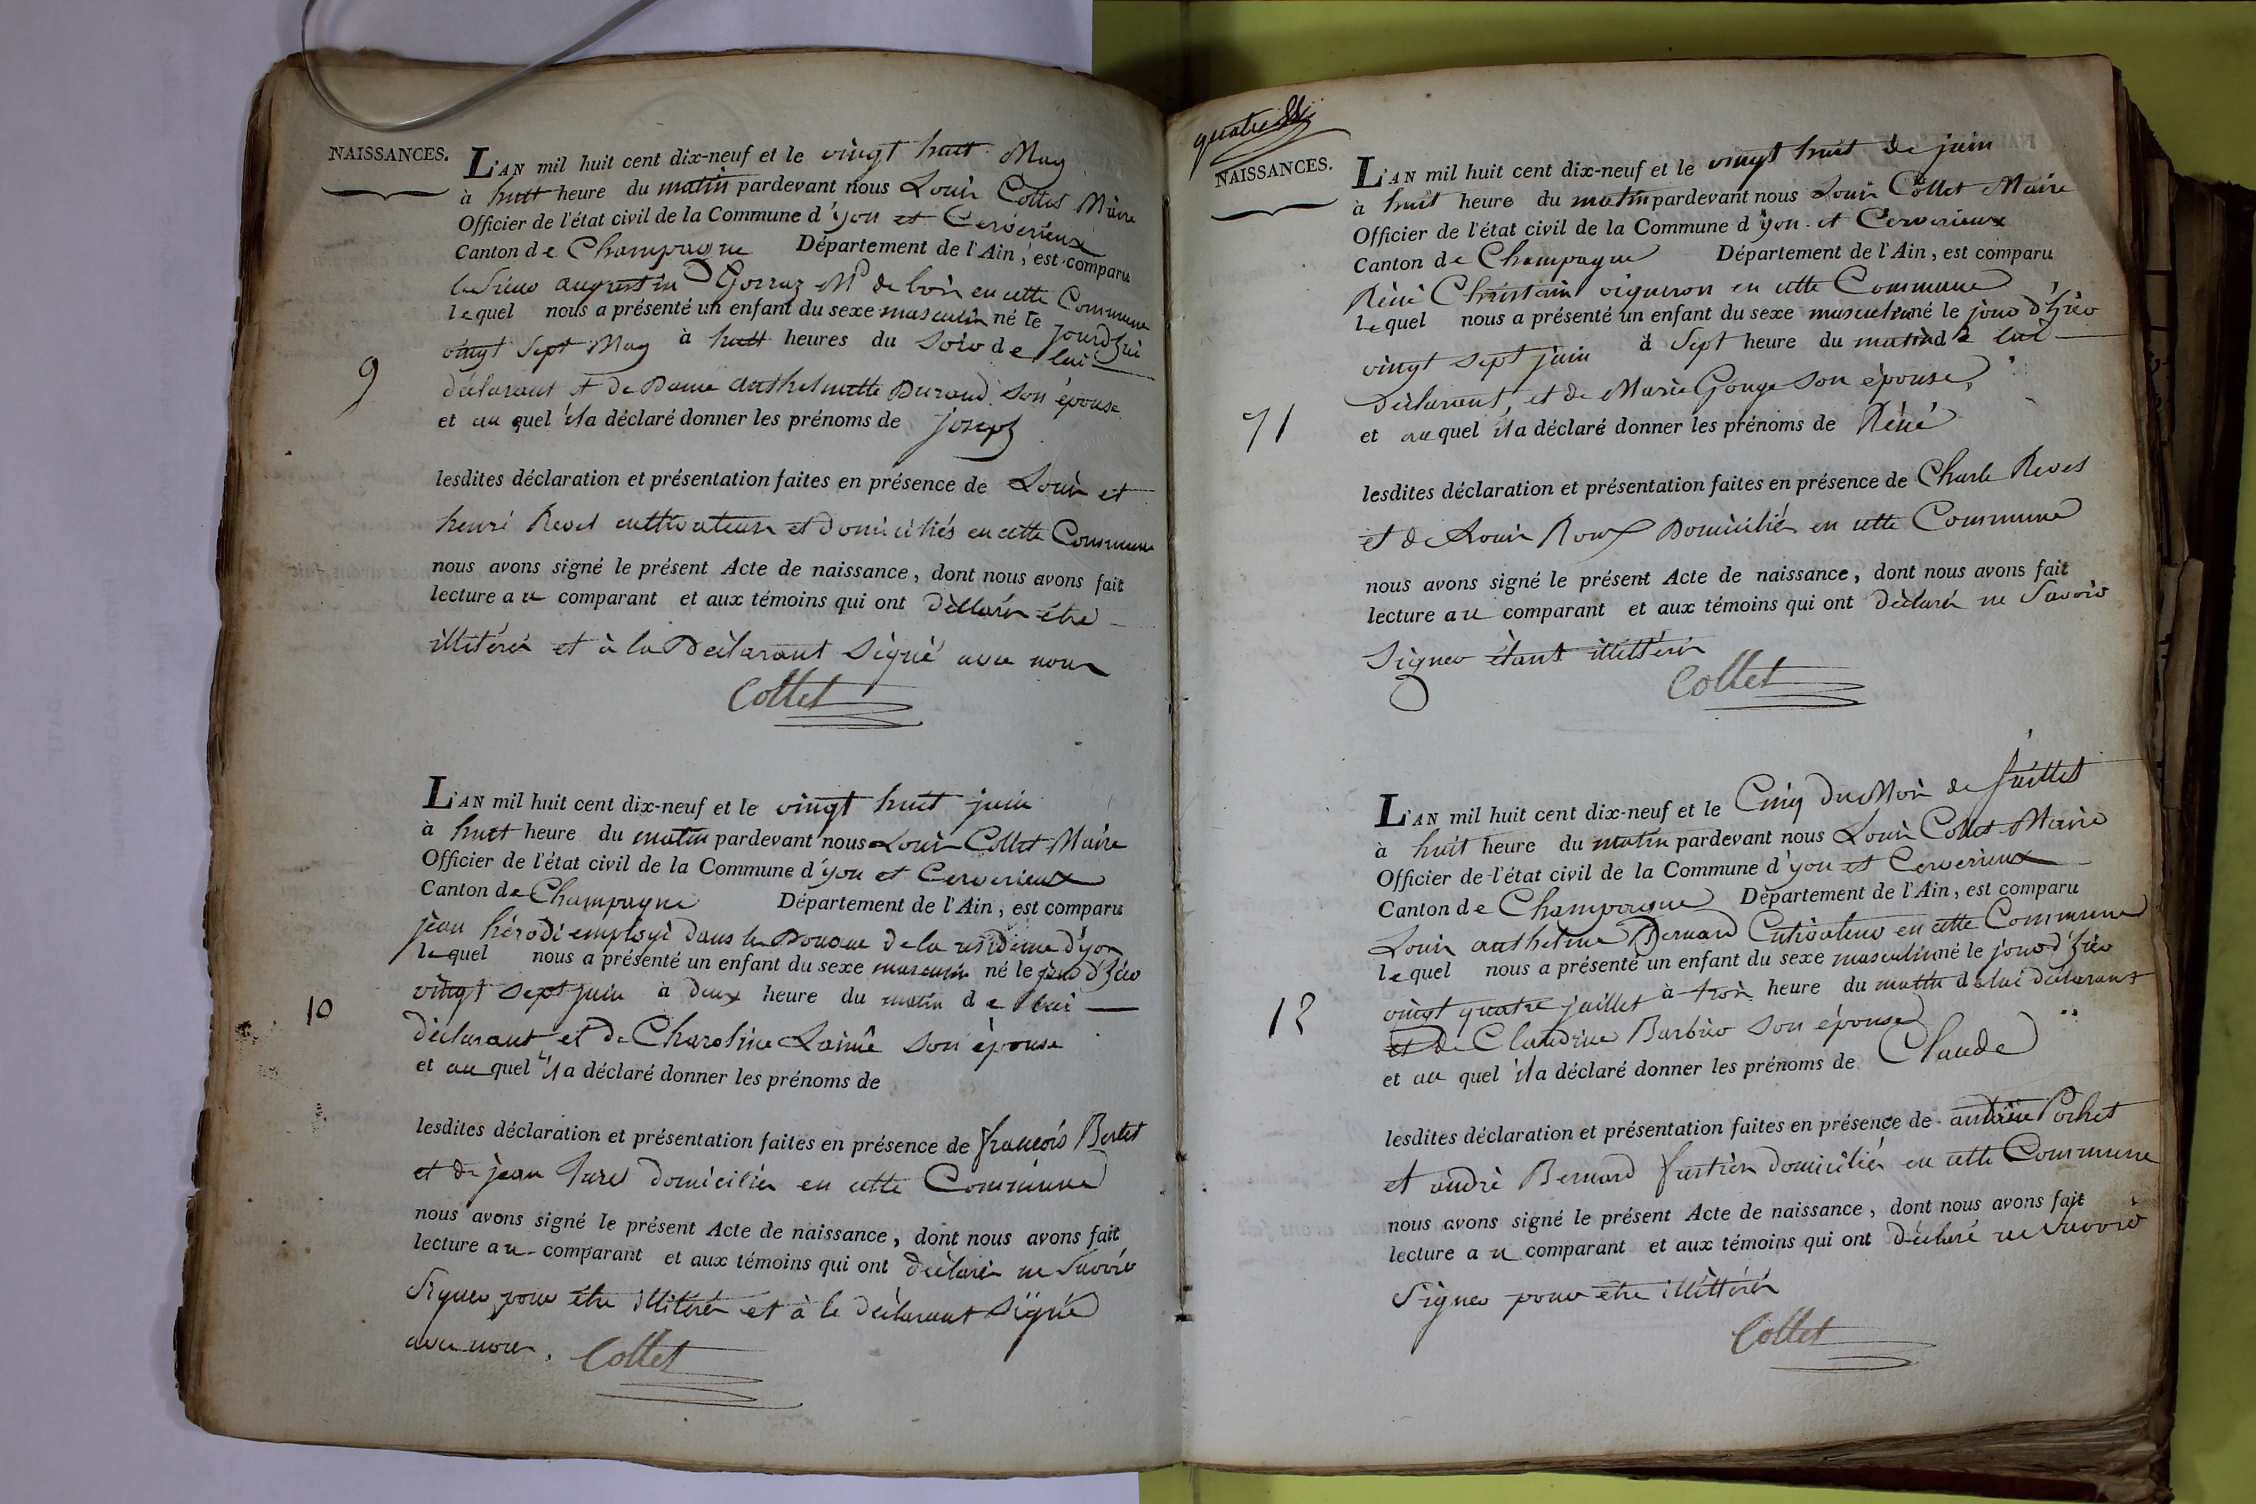 NAISSANCES.
L'AN mil huit cent dix-neuf et le vingt huit May
à huit heure du matin pardevant nous Louis Collet Maire
Officier de l'état civil de la Commune d'yon et Cerverieux
Canton de Champagne Département de l'Ain, est comparu
le Sieur augustin Gorraz Md de bois en cette Commune
lequel nous a présenté un enfant du sexe masculin né le jourd'hui
vingt Sept May à huit heures du Soir de lui
déclarant et de Dame anthelmette Durand son épouse
9
et au quel il a déclaré donner les prénoms de joseph
lesdites déclaration et présentation faites en présence de Louis et
henri Revel cultivateurs et domiciliés en cette Commune
nous avons signé le présent Acte de naissance, dont nous avons fait
lecture au comparant et aux témoins qui ont déclarés être
illitérés et à le Déclarant Signé avec nous
Collet
L'AN mil huit cent dix-neuf et le vingt huit juin
à huit heure du matin pardevant nous Louis Collet Maire
Officier de l'état civil de la Commune d'yon et Cerverieux
Canton de Champagne Département de l'Ain, est comparu
jean hérodi employé dans la Douane de la residence d'yon
lequel nous a présenté un enfant du sexe masculin né le jour d'hier
vingt sept juin à deux heure du matin de lui
10
déclarant et de Charoline Lainé son épouse
et au quel il a déclaré donner les prénoms de
lesdites déclaration et présentation faites en présence de françois Bertet
et de jean domiciliés en cette Commune
nous avons signé le présent Acte de naissance, dont nous avons fait
lecture au comparant et aux témoins qui ont déclarés ne Savoir
Signer pour être illitérés et à le déclarant Signé
avec nous. Collet
quatre
NAISSANCES.
L'AN mil huit cent dix-neuf et le vingt huit de juin
à huit heure du matin pardevant nous Louis Collet Maire
Officier de l'état civil de la Commune d'yon et Cerverieux
Canton de Champagne Département de l'Ain, est comparu
Réné Christain vigneron en cette Commune
lequel nous a présenté un enfant du sexe masculin né le jour d'hier
vingt sept juin à Sept heure du matin de lui
déclarant et de Marie Gouge son épouse,
11
et au quel il a déclaré donner les prénoms de Réné
lesdites déclaration et présentation faites en présence de Charle Revel
et de Louis Roux Domiciliés en cette Commune
nous avons signé le présent Acte de naissance, dont nous avons fait
lecture au comparant et aux témoins qui ont déclarés ne Savoir
Signer étant illittérés
Collet
L'AN mil huit cent dix-neuf et le Cinq du Mois de juillet
à huit heure du matin pardevant nous Louis Collet Maire
Officier de l'état civil de la Commune d'yon et Cerverieux
Canton de Champagne Département de l'Ain, est comparu
Louis anthelme Bernard Cutivateur en cette Commune
lequel nous a présenté un enfant du sexe masculin né le jour d'hier
vingt quatre juillet à trois heure du matin de lui déclarant
12
et de Claudine Barbier son épouse
et au quel il a déclaré donner les prénoms de Claude
lesdites déclaration et présentation faites en présence de Pochet
et andré Bernard domiciliés en cette Commune
nous avons signé le présent Acte de naissance, dont nous avons fait
lecture au comparant et aux témoins qui ont déclaré ne Savoir
Signer pour être illittérés
Collet